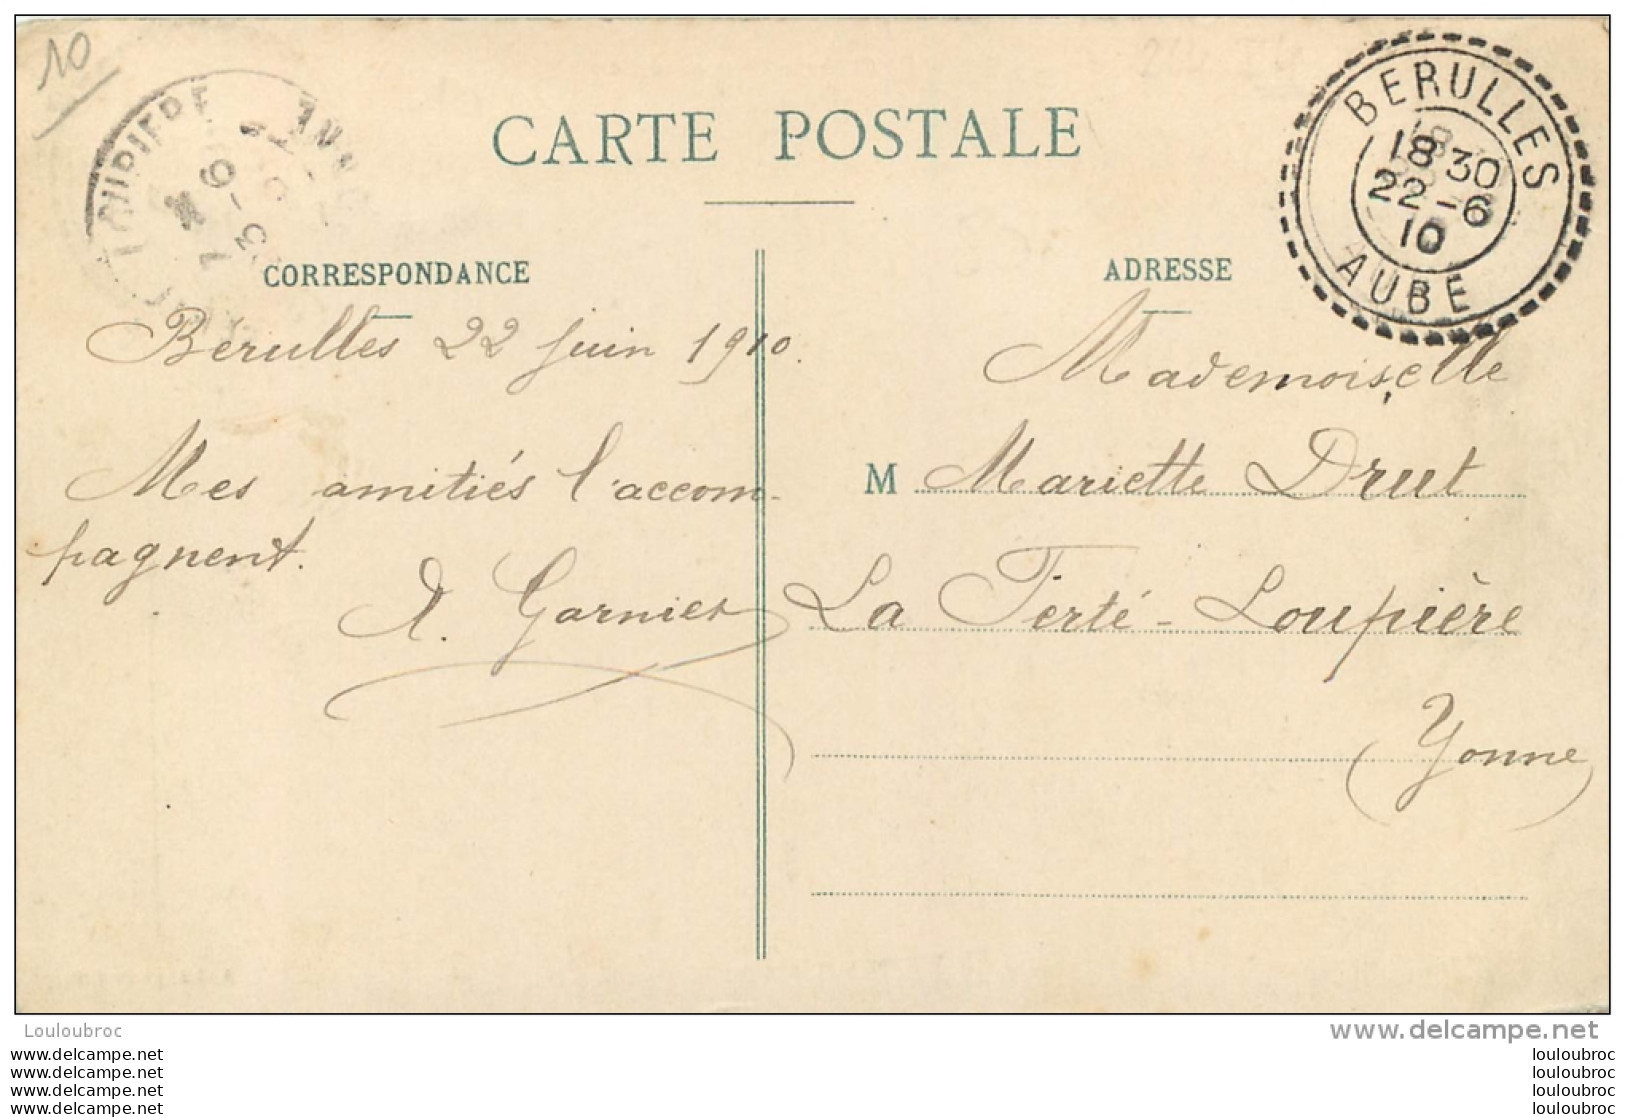 10
CARTE POSTALE
BERULLES
18 30
22-6
10
AUBE
CORRESPONDANCE
Bérulles 22 juin 1910.
Mes amitiés l'accom-
pagnent.
A. Garnier
ADRESSE
Mademoiselle
M Mariette Drut
La Ferté-Loupière
(Yonne)
Louloubroc
www.delcampe.net
www.delcampe.net
www.delcampe.net
www.delcampe.net
www.delcampe.net
louloubroc
louloubroc
louloubroc
louloubroc